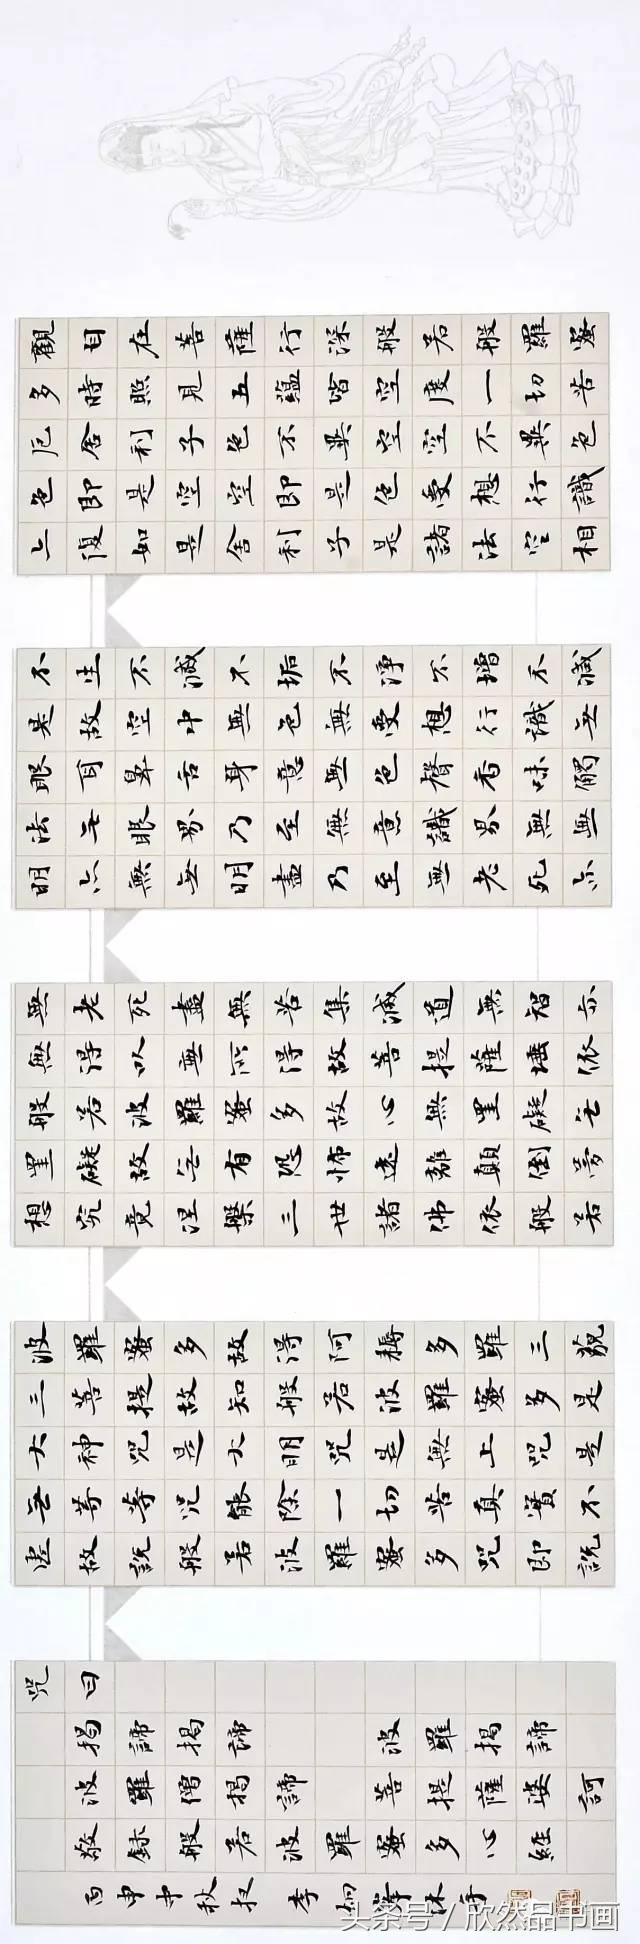 觀自在菩薩行深般若般羅蜜
多時照見五蘊皆空度一切苦
厄舍利子色不異空空不異色
色即是空空即是色受想行識
亦復如是舍利子是諸法空相
不生不滅不垢不淨不增不減
是故空中無色無受想行識無
眼耳鼻舌身意無色聲香味觸
法无眼界乃至無意識界無无
明亦無无明盡乃至無老死亦
無老死盡無苦集滅道無智亦
無得以無所得故菩提薩埵依
般若波羅蜜多故心無罣礙无
罣礙故无有恐怖遠離顛倒夢
想究竟涅槃三世諸佛依般若
波羅蜜多故得阿耨多羅三藐
三菩提故知般若波羅蜜多是
大神咒是大明咒是無上咒是
无等等咒能除一切苦真實不
虛故說般若波羅蜜多咒即說
咒曰
揭諦揭諦 波羅揭諦
波羅僧揭諦 菩提薩婆訶
敬錄般若波羅蜜多心經
丙申中秋 李沐手
头条号/欣然品书画